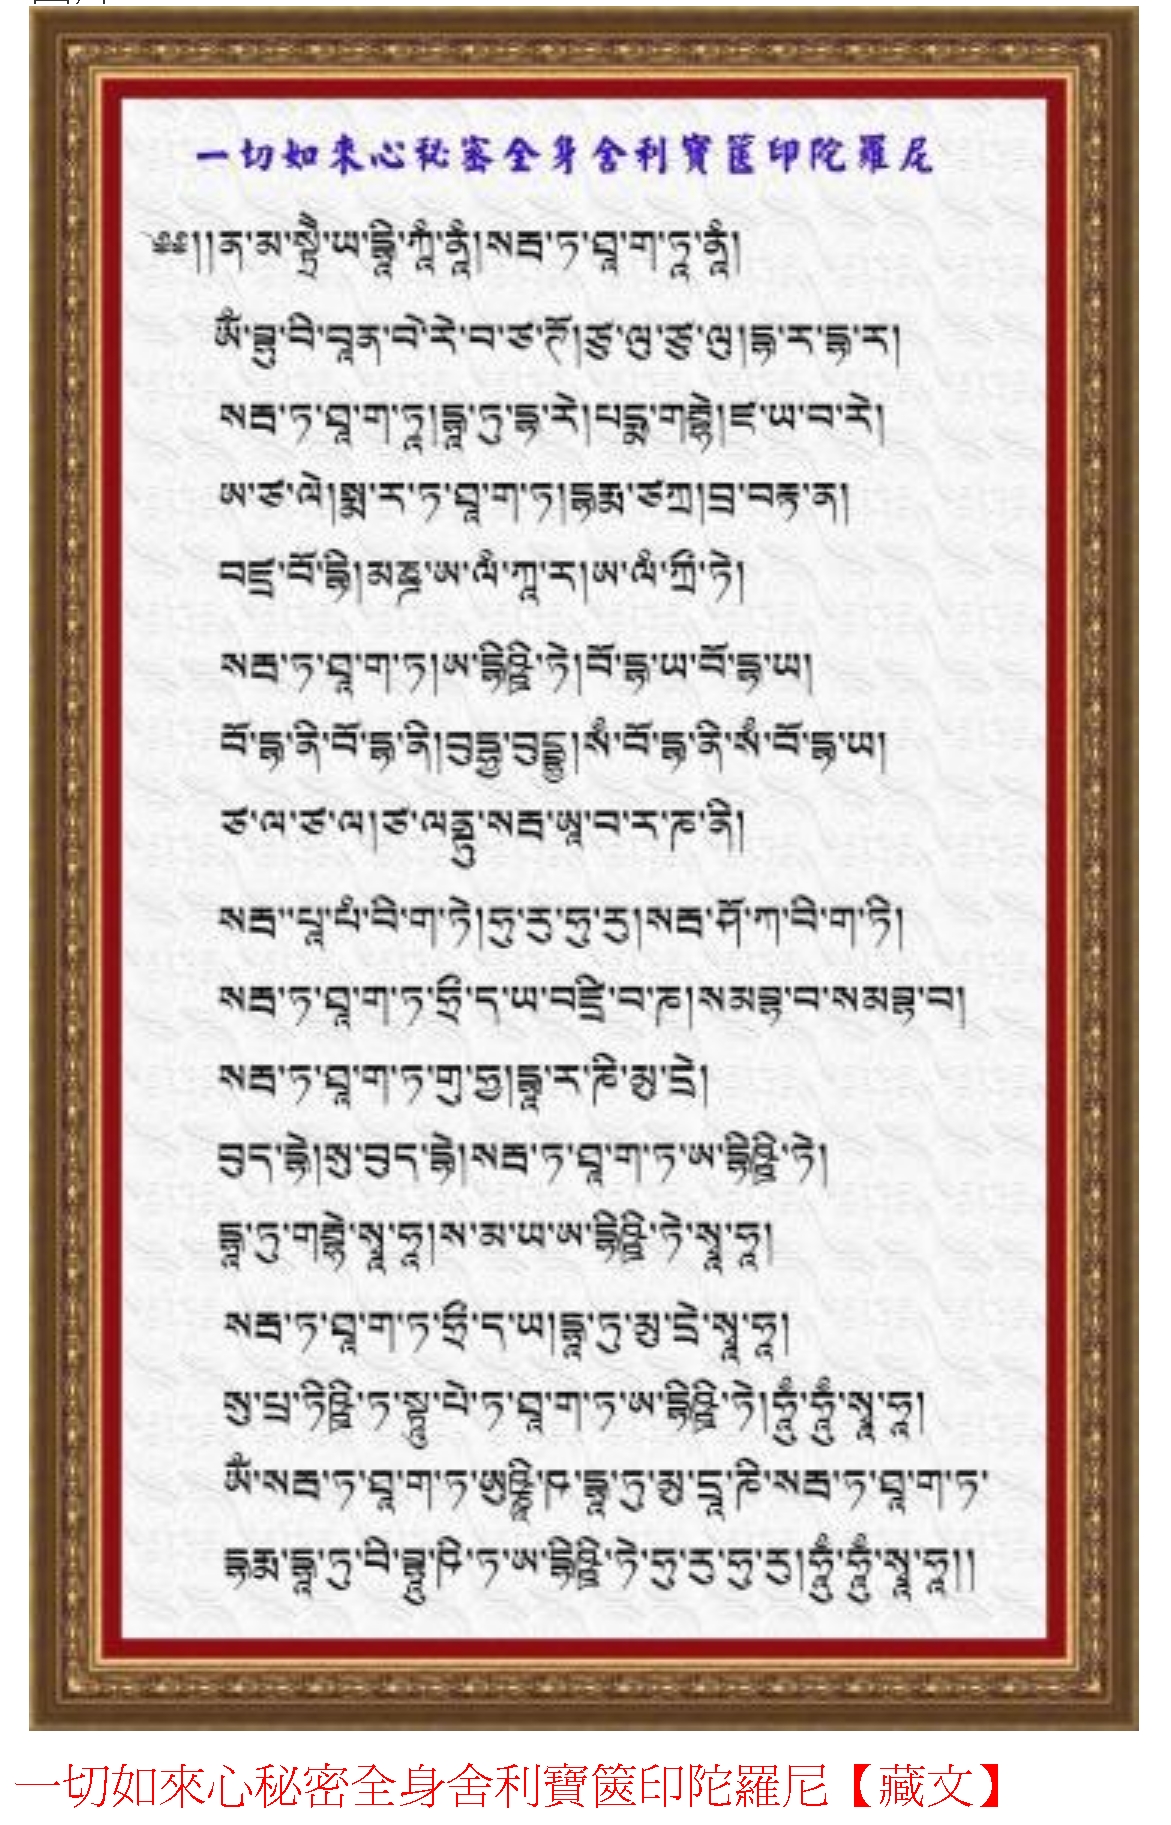 一切如來心秘密全身舍利寶篋印陀羅尼
༄༅།།ན་མ་སྟྲཻ་ཡ་དྷྭི་ཀཱཾ་ནཱཾ།སརྦ་ཏ་ཐཱ་ག་ཏཱ་ནཱཾ།
ཨོཾ་བྷུ་བི་བཱན་བེ་རེ་བ་ཙ་ཊོ།ཙུ་ལུ་ཙུ་ལུ།དྷ་ར་དྷ་ར།
སརྦ་ཏ་ཐཱ་ག་ཏཱ།དྷཱ་ཏུ་དྷ་རེ།པདྨ་གརྦྷེ།ཛ་ཡ་བ་རེ།
ཨ་ཙ་ལེ།སྨ་ར་ཏ་ཐཱ་ག་ཏ།དྷརྨ་ཙཀྲ།པྲ་བརྟ་ན།
བཛྲ་བོ་དྷི།མཎྜ་ཨ་ལཾ་ཀཱ་ར།ཨ་ལཾ་ཀྲྀ་ཏེ།
སརྦ་ཏ་ཐཱ་ག་ཏ།ཨ་དྷིཥྛི་ཏེ།བོ་དྷ་ཡ་བོ་དྷ་ཡ།
བོ་དྷ་ནི་བོ་དྷ་ནི།བུདྡྷ་བུདྡྷ།སཾ་བོ་དྷ་ནི་སཾ་བོ་དྷ་ཡ།
ཙ་ལ་ཙ་ལ།ཙ་ལནྟུ་སརྦ་ཨཱ་བ་ར་ཎ་ནི།
སརྦ་པཱ་པཾ་བི་ག་ཏེ།ཧུ་རུ་ཧུ་རུ།སརྦ་ཤོ་ཀ་བི་ག་ཏི།
སརྦ་ཏ་ཐཱ་ག་ཏ་ཧྲྀ་ད་ཡ་བཛྲི་བ་ཎ།སམབྷ་བ་སམབྷ་བ།
སརྦ་ཏ་ཐཱ་ག་ཏ་གུ་ཧྱ།དྷཱ་ར་ཎི་མུ་དྲེ།
བུད་དྷེ།སུ་བུད་དྷེ།སརྦ་ཏ་ཐཱ་ག་ཏ་ཨ་དྷིཥྛི་ཏེ།
དྷཱ་ཏུ་གརྦྷེ་སྭཱ་ཧཱ།ས་མ་ཡ་ཨ་དྷིཥྛི་ཏེ་སྭཱ་ཧཱ།
སརྦ་ཏ་ཐཱ་ག་ཏ་ཧྲྀ་ད་ཡ།དྷཱ་ཏུ་མུ་དྲེ་སྭཱ་ཧཱ།
སུ་པྲ་ཏིཥྛི་ཏ་སྟཱུ་པེ་ཏ་ཐཱ་ག་ཏ་ཨ་དྷིཥྛི་ཏེ།ཧཱུཾ་ཧཱུཾ་སྭཱ་ཧཱ།
ཨོཾ་སརྦ་ཏ་ཐཱ་ག་ཏ་ཨུཥྞཱི་ཥ་དྷཱ་ཏུ་མུ་དྲཱ་ཎི་སརྦ་ཏ་ཐཱ་ག་ཏ་
དྷརྨ་དྷཱ་ཏུ་བི་བྷཱུ་ཥི་ཏ་ཨ་དྷིཥྛི་ཏེ་ཧུ་རུ་ཧུ་རུ།ཧཱུཾ་ཧཱུཾ་སྭཱ་ཧཱ།།
一切如來心秘密全身舍利寶篋印陀羅尼【藏文】